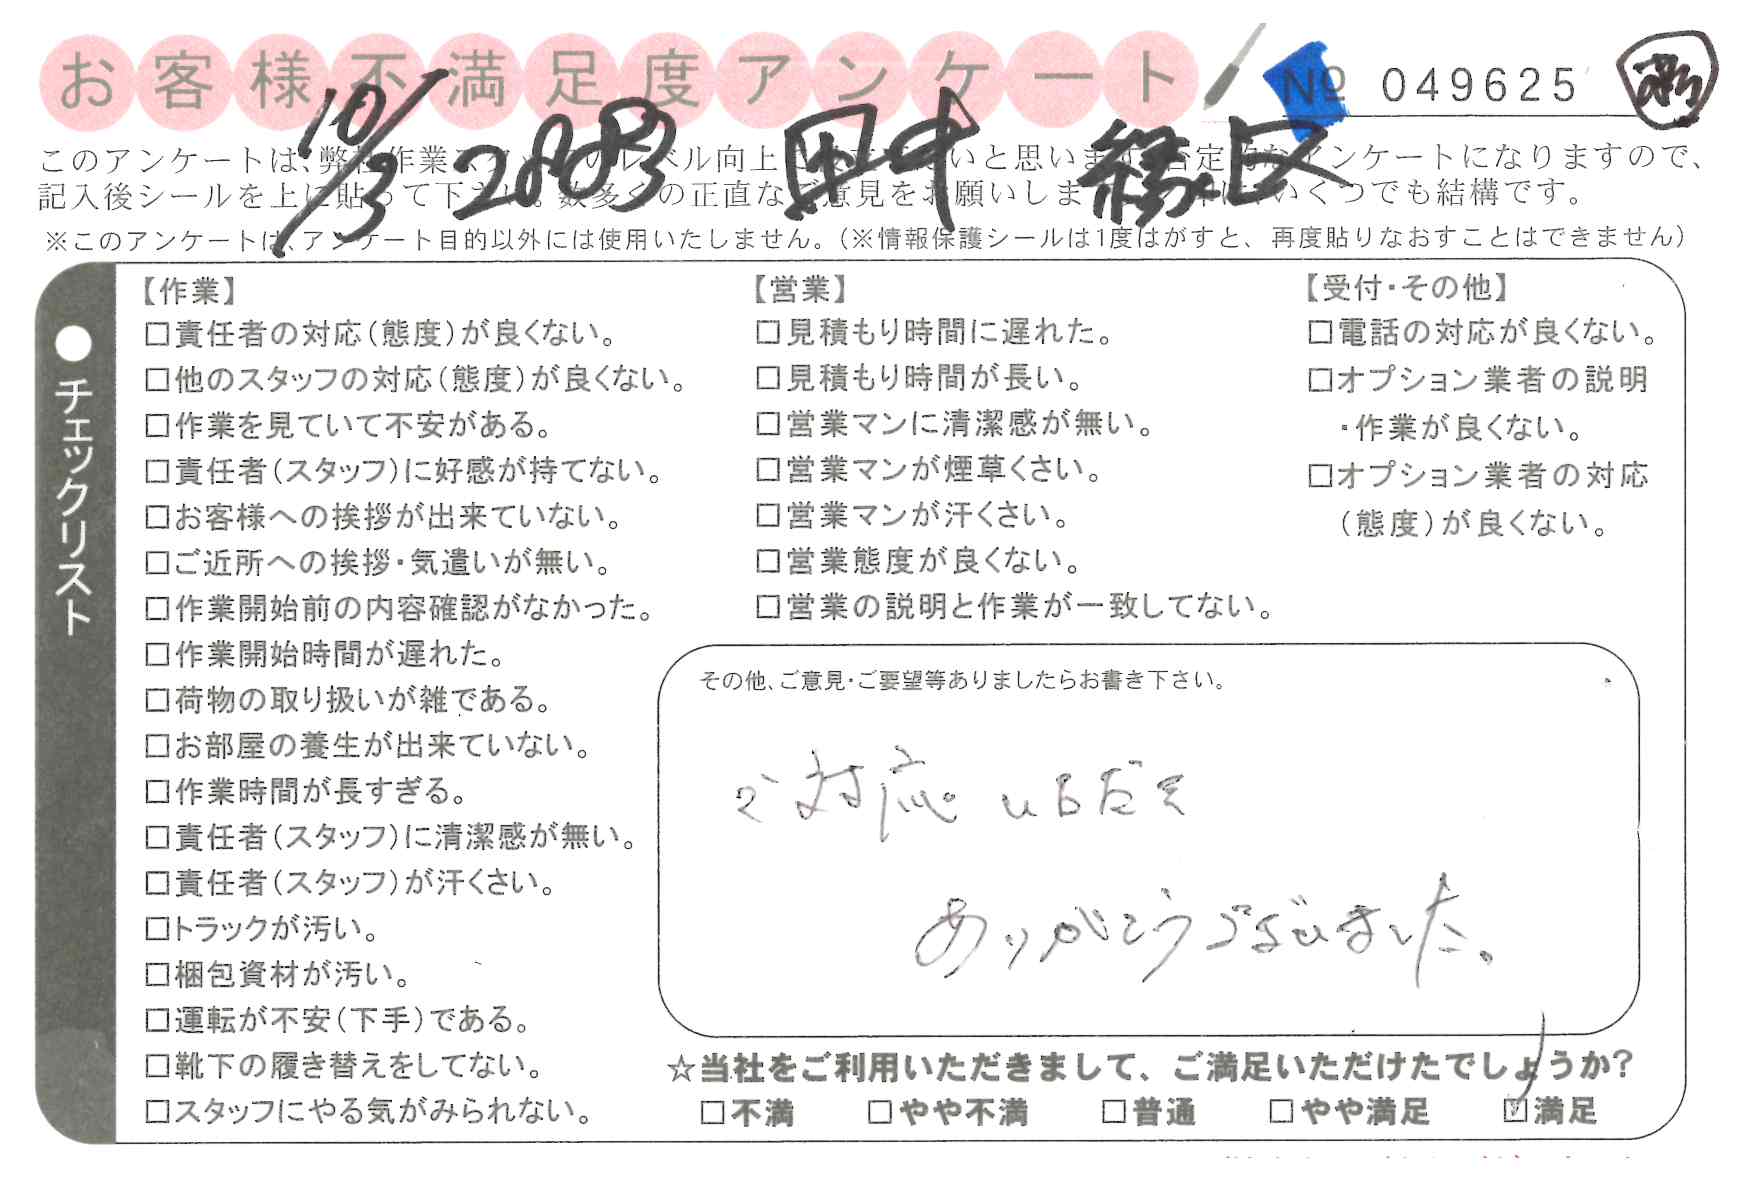 お客様不満足度アンケート
№ 049625
10/3 2883 田中 緑区
このアンケートは、弊社作業スタッフのレベル向上に いと思います。否定的なアンケートになりますので、
記入後シールを上に貼って下さい。数多くの正直なご意見をお願いしま いくつでも結構です。
※このアンケートは、アンケート目的以外には使用いたしません。(※情報保護シールは1度はがすと、再度貼りなおすことはできません)
●チェックリスト
【作業】
□責任者の対応(態度)が良くない。
□他のスタッフの対応(態度)が良くない。
□作業を見ていて不安がある。
□責任者(スタッフ)に好感が持てない。
□お客様への挨拶が出来ていない。
□ご近所への挨拶・気遣いが無い。
□作業開始前の内容確認がなかった。
□作業開始時間が遅れた。
□荷物の取り扱いが雑である。
□お部屋の養生が出来ていない。
□作業時間が長すぎる。
□責任者(スタッフ)に清潔感が無い。
□責任者(スタッフ)が汗くさい。
□トラックが汚い。
□梱包資材が汚い。
□運転が不安(下手)である。
□靴下の履き替えをしてない。
□スタッフにやる気がみられない。
【営業】
□見積もり時間に遅れた。
□見積もり時間が長い。
□営業マンに清潔感が無い。
□営業マンが煙草くさい。
□営業マンが汗くさい。
□営業態度が良くない。
□営業の説明と作業が一致してない。
【受付・その他】
□電話の対応が良くない。
□オプション業者の説明
・作業が良くない。
□オプション業者の対応
(態度)が良くない。
その他、ご意見・ご要望等ありましたらお書き下さい。
ご対応いただき
ありがとうございました。
☆当社をご利用いただきまして、ご満足いただけたでしょうか?
□不満 □やや不満 □普通 □やや満足 ☑満足